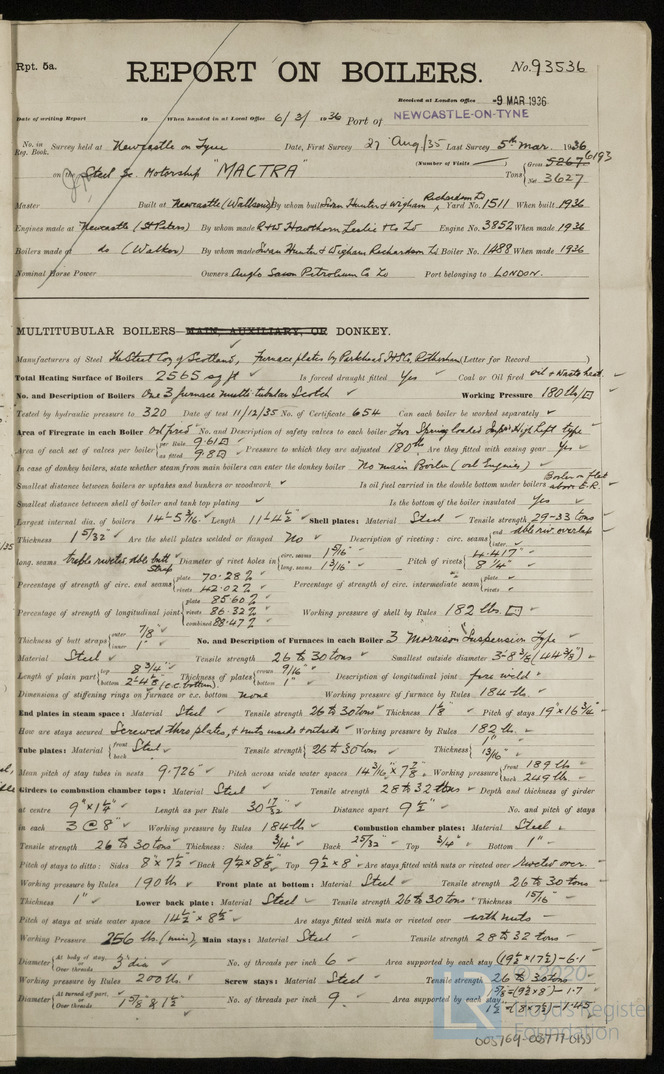 Rpt. 5a.
REPORT ON BOILERS.
No. 93536
Received at London Office -9 MAR 1936
Date of writing Report 19 When handed in at Local Office 6/3/1936 Port of NEWCASTLE-ON-TYNE
No. in Reg. Book. Survey held at Newcastle on Tyne Date, First Survey 27 Aug/35 Last Survey 5th Mar. 1936
(Number of Visits )
on the Steel Sc. Motorship "MACTRA" Tons { Gross 5267 6193
Net 3627
Master Built at Newcastle (Wallsend) By whom built Swan Hunter & Wigham Richardson Ld Yard No. 1511 When built 1936
Engines made at Newcastle (St Peters) By whom made R & W Hawthorn Leslie & Co Ld Engine No. 3852 When made 1936
Boilers made at do (Walker) By whom made Swan Hunter & Wigham Richardson Ld Boiler No. 1488 When made 1936
Nominal Horse Power Owners Anglo Saxon Petroleum Co Ld Port belonging to LONDON.
MULTITUBULAR BOILERS—MAIN, AUXILIARY, OR DONKEY.
Manufacturers of Steel The Steel Coy of Scotland, Furnace plates by Parkhead Rotherham (Letter for Record )
Total Heating Surface of Boilers 2565 sq ft Is forced draught fitted Yes Coal or Oil fired oil & waste heat
No. and Description of Boilers One 3 furnace multi-tubular Scotch Working Pressure 180 lbs/□
Tested by hydraulic pressure to 320 Date of test 11/12/35 No. of Certificate 654 Can each boiler be worked separately ✓
Area of Firegrate in each Boiler Oil fired No. and Description of safety valves to each boiler Two Spring loaded High Lift type
Area of each set of valves per boiler { per Rule 9.61□ as fitted 9.8□ Pressure to which they are adjusted 180 lbs Are they fitted with easing gear Yes
In case of donkey boilers, state whether steam from main boilers can enter the donkey boiler No main Boiler (oil Engines)
Smallest distance between boilers or uptakes and bunkers or woodwork ✓ Is oil fuel carried in the double bottom under boilers Boiler on flat above E.R.
Smallest distance between shell of boiler and tank top plating ✓ Is the bottom of the boiler insulated Yes
Largest internal dia. of boilers 14'-5 3/16" Length 11'-4½" Shell plates: Material Steel Tensile strength 29-33 tons
Thickness 1 5/32" Are the shell plates welded or flanged No Description of riveting: circ. seams { end dble riv. overlap inter. ✓
long. seams treble riveted dble butt strap Diameter of rivet holes in { circ. seams 1 5/16" long. seams 1 3/16" Pitch of rivets { 4.417" 8¼"
Percentage of strength of circ. end seams { plate 70.28% rivets 42.02% Percentage of strength of circ. intermediate seam { plate ✓ rivets ✓
Percentage of strength of longitudinal joint { plate 85.60% rivets 86.32% combined 88.47% Working pressure of shell by Rules 182 lbs □
Thickness of butt straps { outer 7/8" inner 1" No. and Description of Furnaces in each Boiler 3 Morrison Suspension Type
Material Steel Tensile strength 26 to 30 tons Smallest outside diameter 3'-8 3/8" (44 3/8")
Length of plain part { top 8¾" bottom 2'-4⅛" (c.c. bottom) Thickness of plates { crown 9/16" bottom 1" Description of longitudinal joint fire weld
Dimensions of stiffening rings on furnace or c.c. bottom none Working pressure of furnace by Rules 184 lbs.
End plates in steam space: Material Steel Tensile strength 26 to 30 tons Thickness 1⅛" Pitch of stays 19" x 16¾"
How are stays secured Screwed thro, plates, & nuts inside & outside Working pressure by Rules 182 lbs.
Tube plates: Material { front back Steel Tensile strength { 26 to 30 tons Thickness { 1" 13/16"
Mean pitch of stay tubes in nests 9.726" Pitch across wide water spaces 14 3/16" x 7 7/8" Working pressure { front 189 lbs back 249 lbs
Girders to combustion chamber tops: Material Steel Tensile strength 28 to 32 tons Depth and thickness of girder
at centre 9" x 1½" Length as per Rule 30 17/32" Distance apart 9½" No. and pitch of stays
in each 3 @ 8" Working pressure by Rules 184 lbs Combustion chamber plates: Material Steel
Tensile strength 26 to 30 tons Thickness: Sides ¾" Back 25/32" Top ¾" Bottom 1"
Pitch of stays to ditto: Sides 8" x 7½" Back 9¼" x 8½" Top 9½" x 8" Are stays fitted with nuts or riveted over riveted over
Working pressure by Rules 190 lbs Front plate at bottom: Material Steel Tensile strength 26 to 30 tons
Thickness 1" Lower back plate: Material Steel Tensile strength 26 to 30 tons Thickness 15/16"
Pitch of stays at wide water space 14½" x 8½" Are stays fitted with nuts or riveted over with nuts
Working Pressure 256 lbs (min) Main stays: Material Steel Tensile strength 28 to 32 tons
Diameter { At body of stay, or Over threads 3" dia No. of threads per inch 6 Area supported by each stay (19½" x 17½") - 6.1
Working pressure by Rules 200 lbs. Screw stays: Material Steel Tensile strength 26 to 30 tons
Diameter { At turned off part, or Over threads 1⅝" & 1½" No. of threads per inch 9 Area supported by each stay 1⅝" = (9¾" x 8") - 1.7
1½" = (8" x 7½") - 1.45
© 2020
Lloyd's Register
Foundation
003764-003777-0133